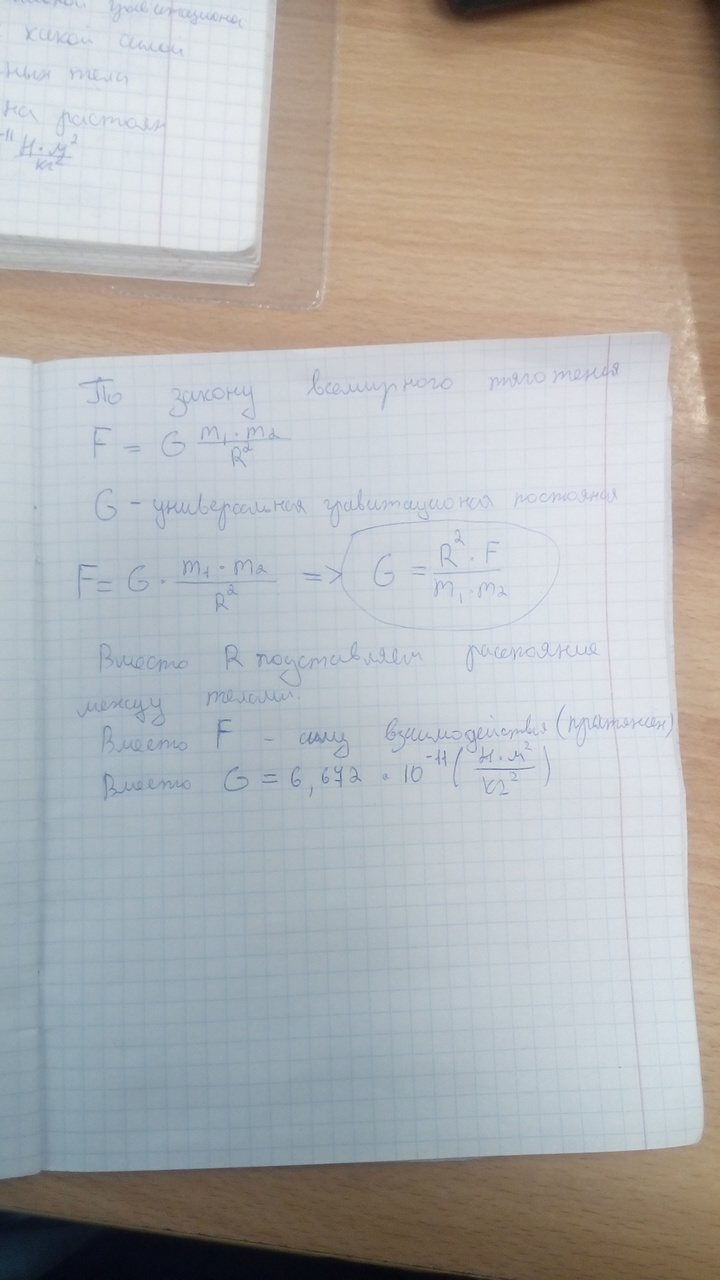 гравитациона
какой силой
ные тела
на растоян
-11 Н·м²/кг²
По закону всемирного тяготения
F = G m₁·m₂/R²
G – универсальная гравитационая постояная
F = G · m₁·m₂/R² => G = R²·F/m₁·m₂
Вместо R подставляем расстояние
между телами.
Вместо F – силу взаимодействия (притяжен)
Вместо G = 6,672 · 10⁻¹¹ (Н·м²/кг²)